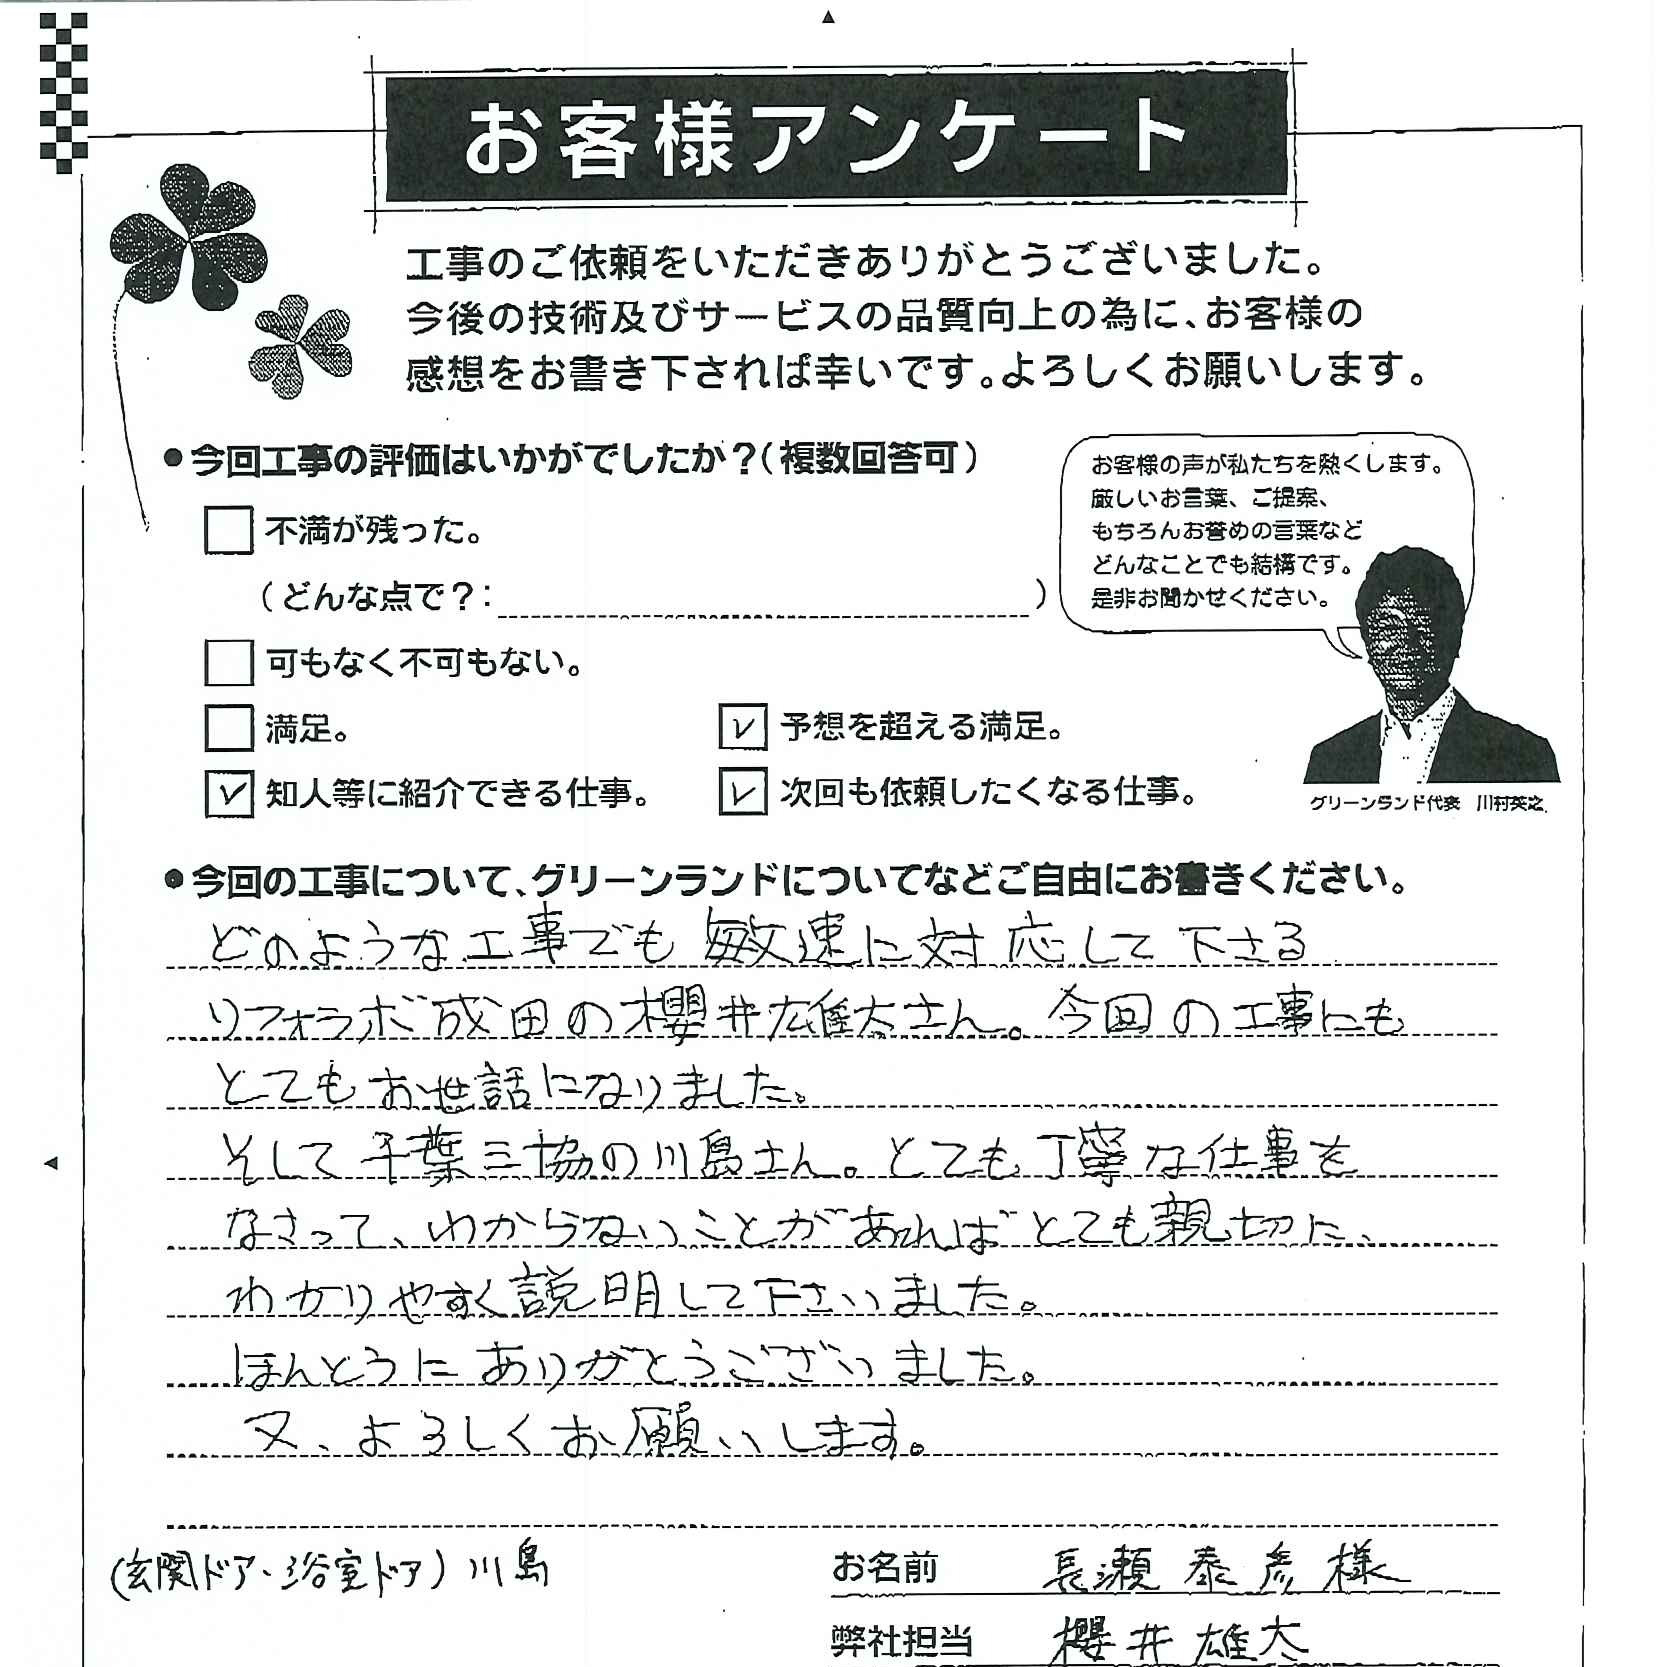 お客様アンケート
工事のご依頼をいただきありがとうございました。
今後の技術及びサービスの品質向上の為に、お客様の
感想をお書き下されば幸いです。よろしくお願いします。
●今回工事の評価はいかがでしたか？（複数回答可）
不満が残った。
（どんな点で？：　）
可もなく不可もない。
満足。
予想を超える満足。
知人等に紹介できる仕事。
次回も依頼したくなる仕事。
お客様の声が私たちを熱くします。
厳しいお言葉、ご提案、
もちろんお誉めの言葉など
どんなことでも結構です。
是非お聞かせください。
グリーンランド代表　川村英之
●今回の工事について、グリーンランドについてなどご自由にお書きください。
どのような工事でも敏速に対応して下さる
リフォラボ成田の櫻井雄太さん。今回の工事にも
とてもお世話になりました。
そして千葉三協の川島さん。とても丁寧な仕事を
なさって、わからないことがあればとても親切に、
わかりやすく説明して下さいました。
ほんとうにありがとうございました。
又、よろしくお願いします。
(玄関ドア・浴室ドア) 川島
お名前　長瀬 泰彦 様
弊社担当　櫻井 雄太